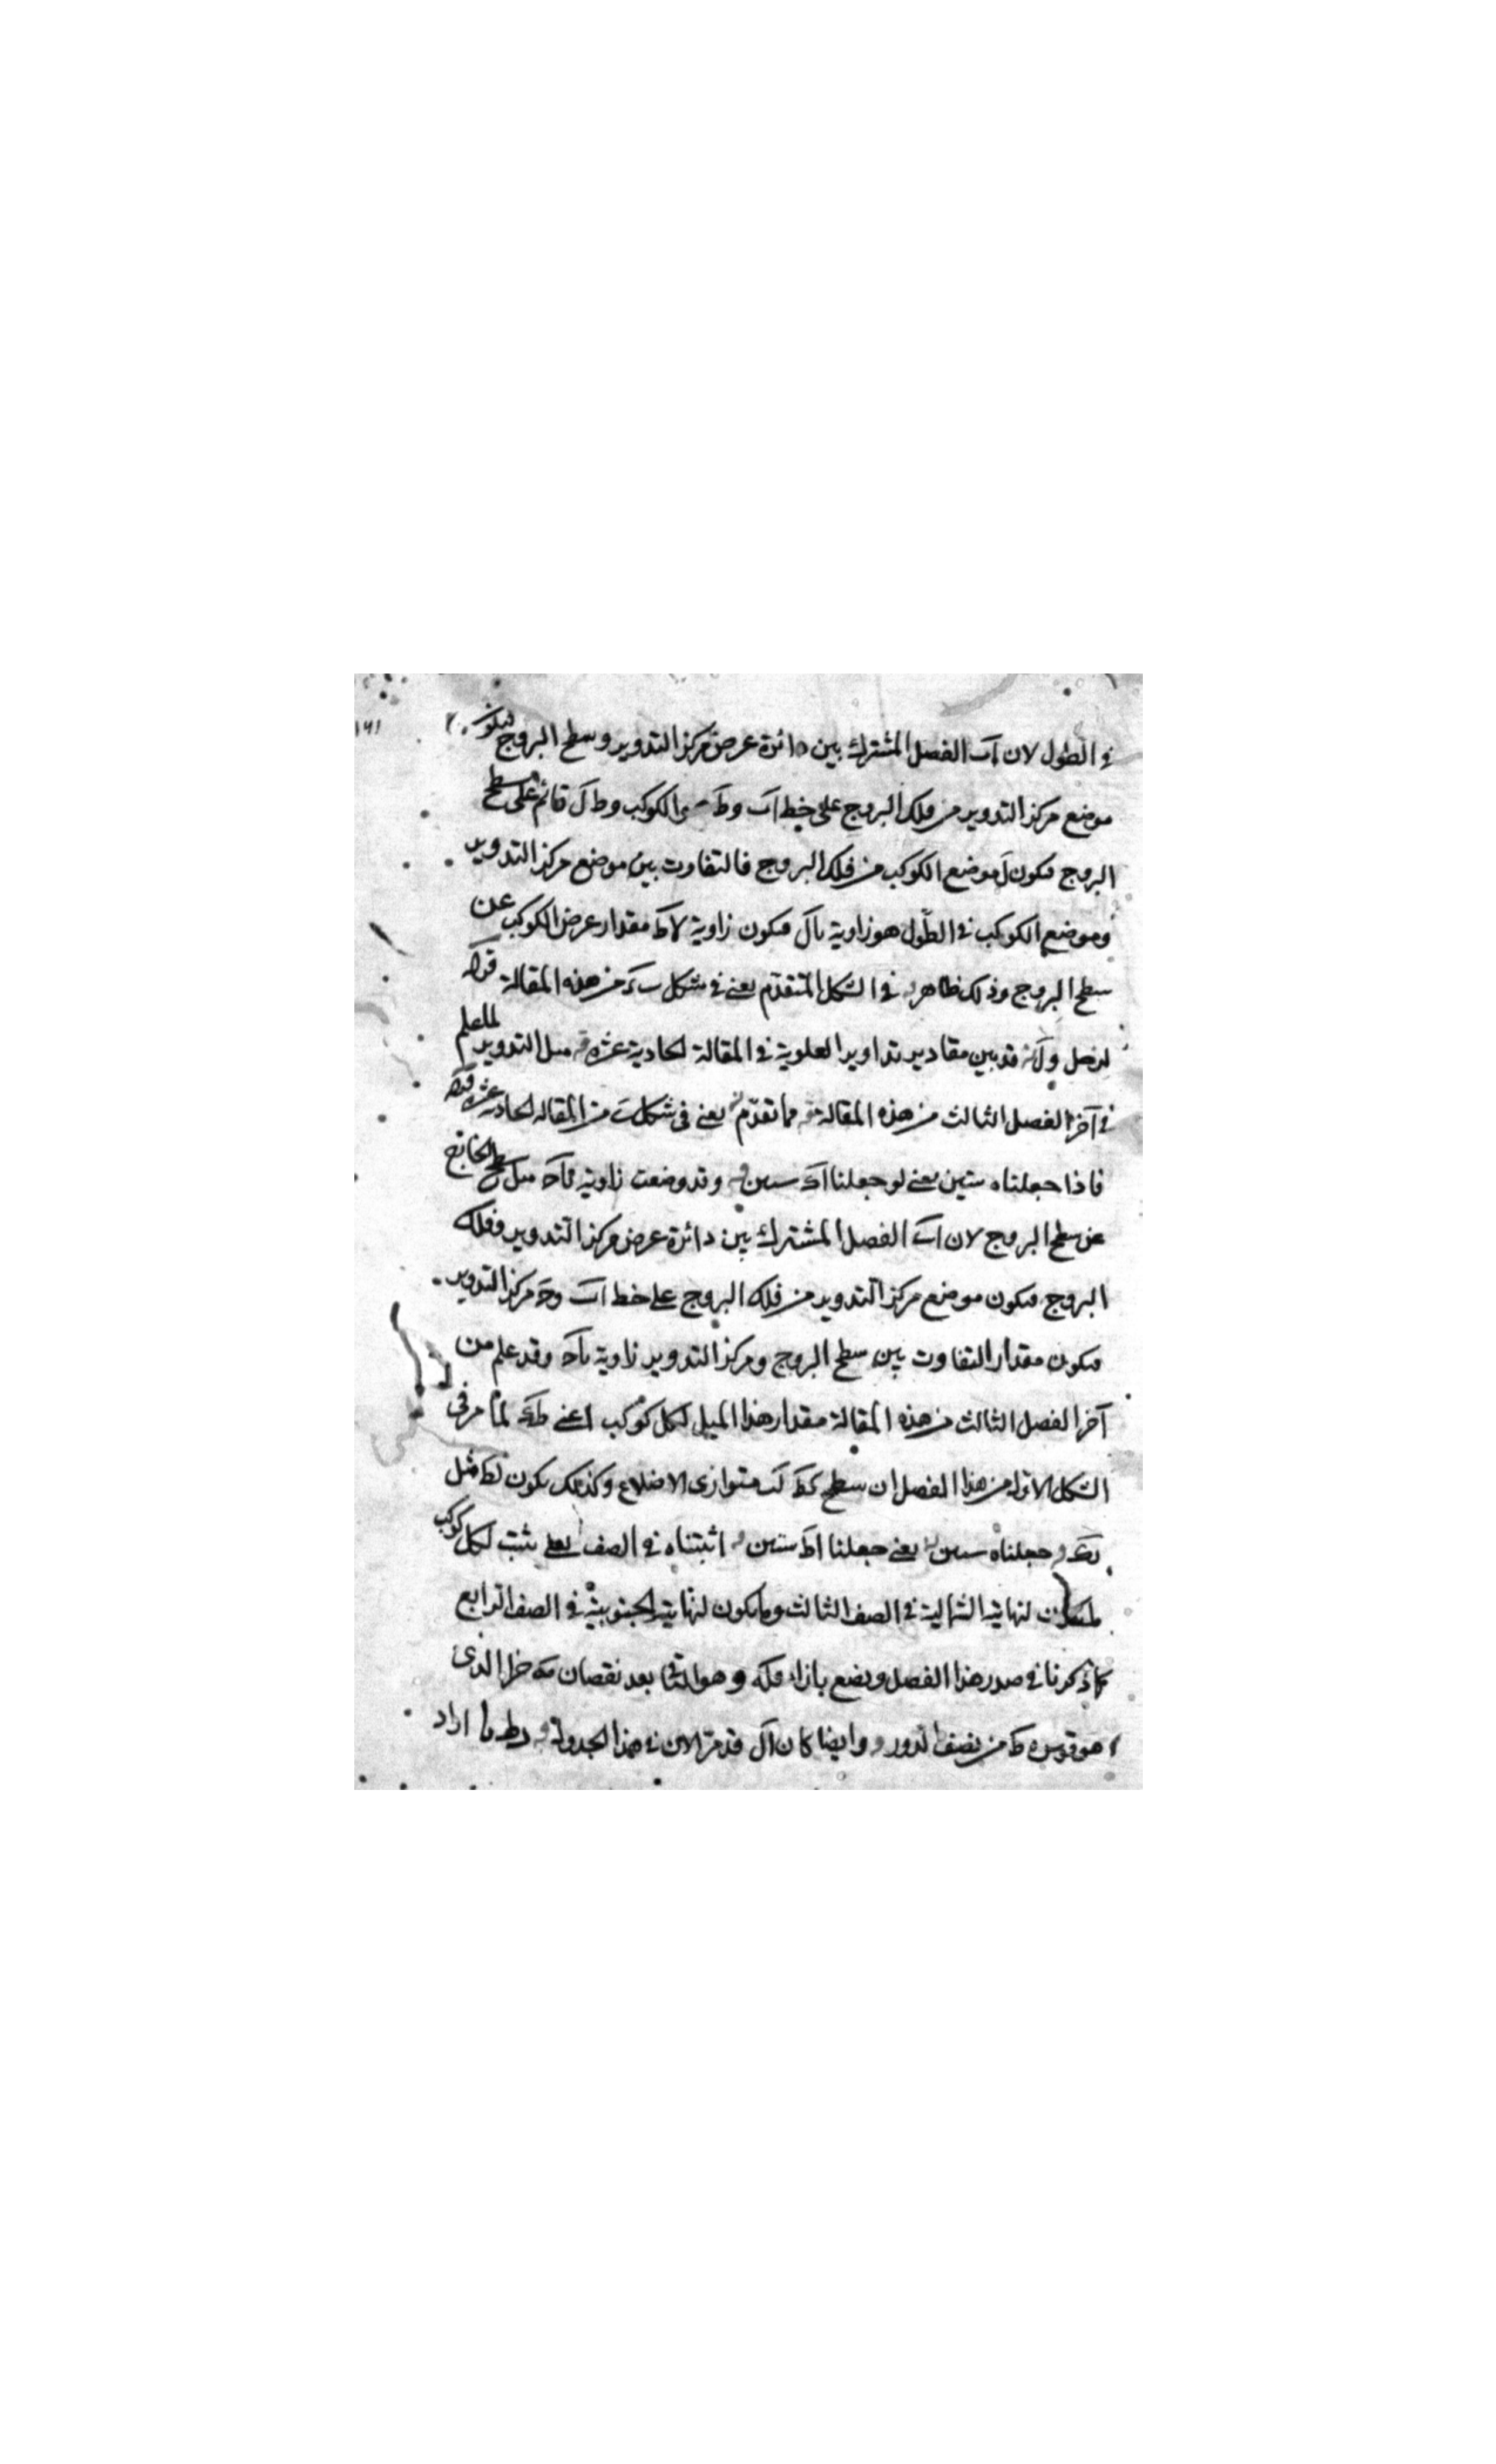 ١٦١
في الطول لان اب الفصل المشترك بين دائرة عرض مركز التدوير وسطح البروج فيكون
موضع مركز التدوير من فلك البروج على خط اب وط الكوكب وط ل قائم على سطح
البروج فيكون ل موضع الكوكب من فلك البروج فالتفاوت بين موضع مركز التدوير
وموضع الكوكب في الطول هو زاوية بال فيكون زاوية لاط مقدار عرض الكوكب عن
سطح البروج وذلك ظاهر في الشكل المتقدم يعني في شكل من هذه المقالة قوله
ولانه قد بين مقادير تداوير العلوية في المقالة الحادية عشره ميل التدوير
في آخر الفصل الثالث من هذه المقالة مما تقدم يعني في شكل من المقاله الحاديه عشره قوله
فاذا جعلناه ستين يعني لو جعلنا ستين وقد وضعت زاوية ميل سطح الخارج
عن سطح البروج لان اب الفصل المشترك بين دائرة عرض مركز التدوير وفلك
البروج فيكون موضع مركز التدوير من فلك البروج على خط اب مركز التدوير
فيكون مقدار التفاوت بين سطح البروج ومركز التدوير زاوية وقد علم من
آخر الفصل الثالث من هذه المقالة مقدار هذا الميل لكل كوكب اعني لما مر في
الشكل الاول من هذا الفصل ان سطح متوازى الاضلاع وكذلك يكون مثل
وجعلناه ستين يعني جعلنا اط ستين اثبتناه في الصف يعني يثبت لكل كوكب
لنهايته الشمالية في الصف الثالث وما يكون لنهايته الجنوبية في الصف الرابع
كما ذكرنا في صدر هذا الفصل ويضع بازاء وهو الباقي بعد نقصان الذى
هو قوس من نصف الدور وايضا كان ال قد مر الان في هذا الجدول اراد